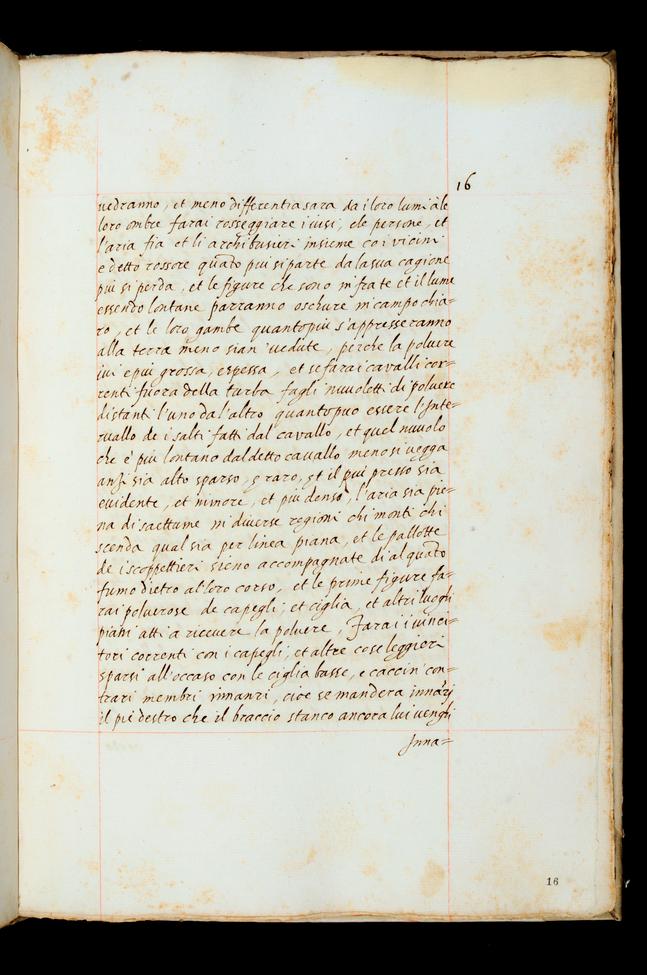 16
uedranno, et meno differentia sara da i loro lumi à le
loro ombre farai rosseggiare i uisi, e le persone, et
l'aria fia et li archibusieri insieme co i vicini
e detto rossore quãto piu si parte da la sua cagione
piu si perda, et le figure che sono infra te et il lume
essendo lontane parranno oschure in campo chia=
ro, et le loro gambe quanto piu s'appresseranno
alla terra meno sian uedute, perche la poluere
iui e piu grossa, e spessa, et se farai caualli cor=
renti fuora della turba fagli nuuoletti di poluere
distanti l'uno da l'altro quanto puo essere l'Inte=
ruallo de i salti fatti dal cauallo, et quel nuuolo
che è piu lontano dal detto cauallo meno si uegga
anzi sia alto sparso, e raro, et il piu presso sia
euidente, et minore, et piu denso, l'aria sia pie=
na di saettume in diuerse regioni chi monti chi
scenda qual sia per linea piana, et le pallotte
de i scoppettieri sieno accompagnate di alquãto
fumo dietro al loro corso, et le prime figure fa=
rai poluerose de capegli, et ciglia, et altri luoghi
piani atti a riceuere la poluere, Farai i uinci=
tori correnti con i capegli, et altre cose leggieri
sparsi all'occaso con le ciglia basse, e caccin con=
trari membri innanzi, cioe se mandera innãzi
il pie destro che il braccio stanco ancora lui uenghi
Inna=
16